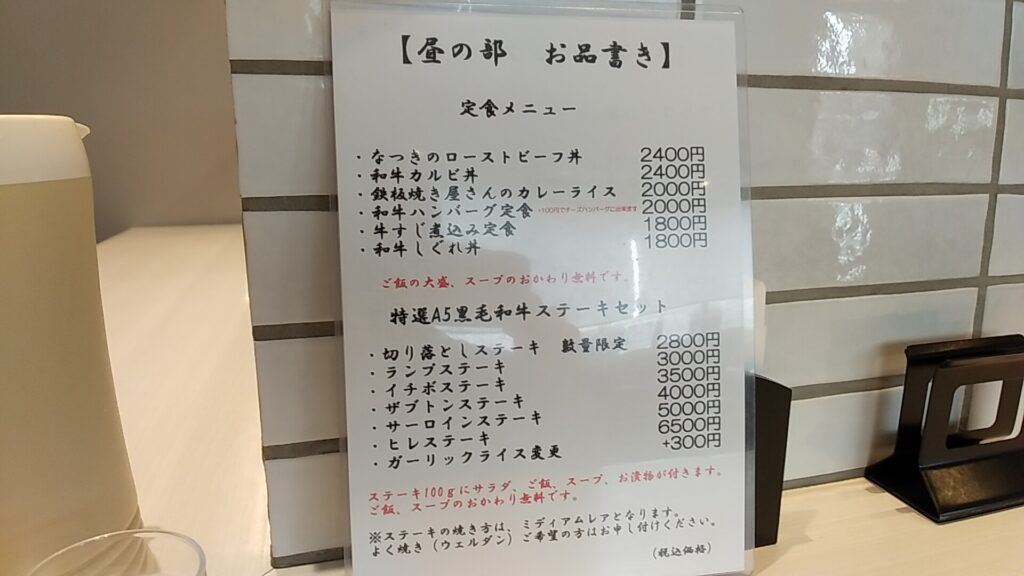 【昼の部　お品書き】
定食メニュー
・なつきのローストビーフ丼 2400円
・和牛カルビ丼 2400円
・鉄板焼き屋さんのカレーライス 2000円
・和牛ハンバーグ定食 +100円でチーズハンバーグに出来ます 2000円
・牛すじ煮込み定食 1800円
・和牛しぐれ丼 1800円
ご飯の大盛、スープのおかわり無料です。
特選A5黒毛和牛ステーキセット
・切り落としステーキ　数量限定 2800円
・ランプステーキ 3000円
・イチボステーキ 3500円
・ザブトンステーキ 4000円
・サーロインステーキ 5000円
・ヒレステーキ 6500円
・ガーリックライス変更 +300円
ステーキ100gにサラダ、ご飯、スープ、お漬物が付きます。
ご飯、スープのおかわり無料です。
※ステーキの焼き方は、ミディアムレアとなります。
よく焼き（ウェルダン）ご希望の方はお申し付けください。
（税込価格）